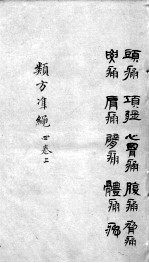 頭痛 項強 心胃痛 腹痛 脅痛
腰痛 肩痛 臂痛 體痛
類方准繩 四卷上